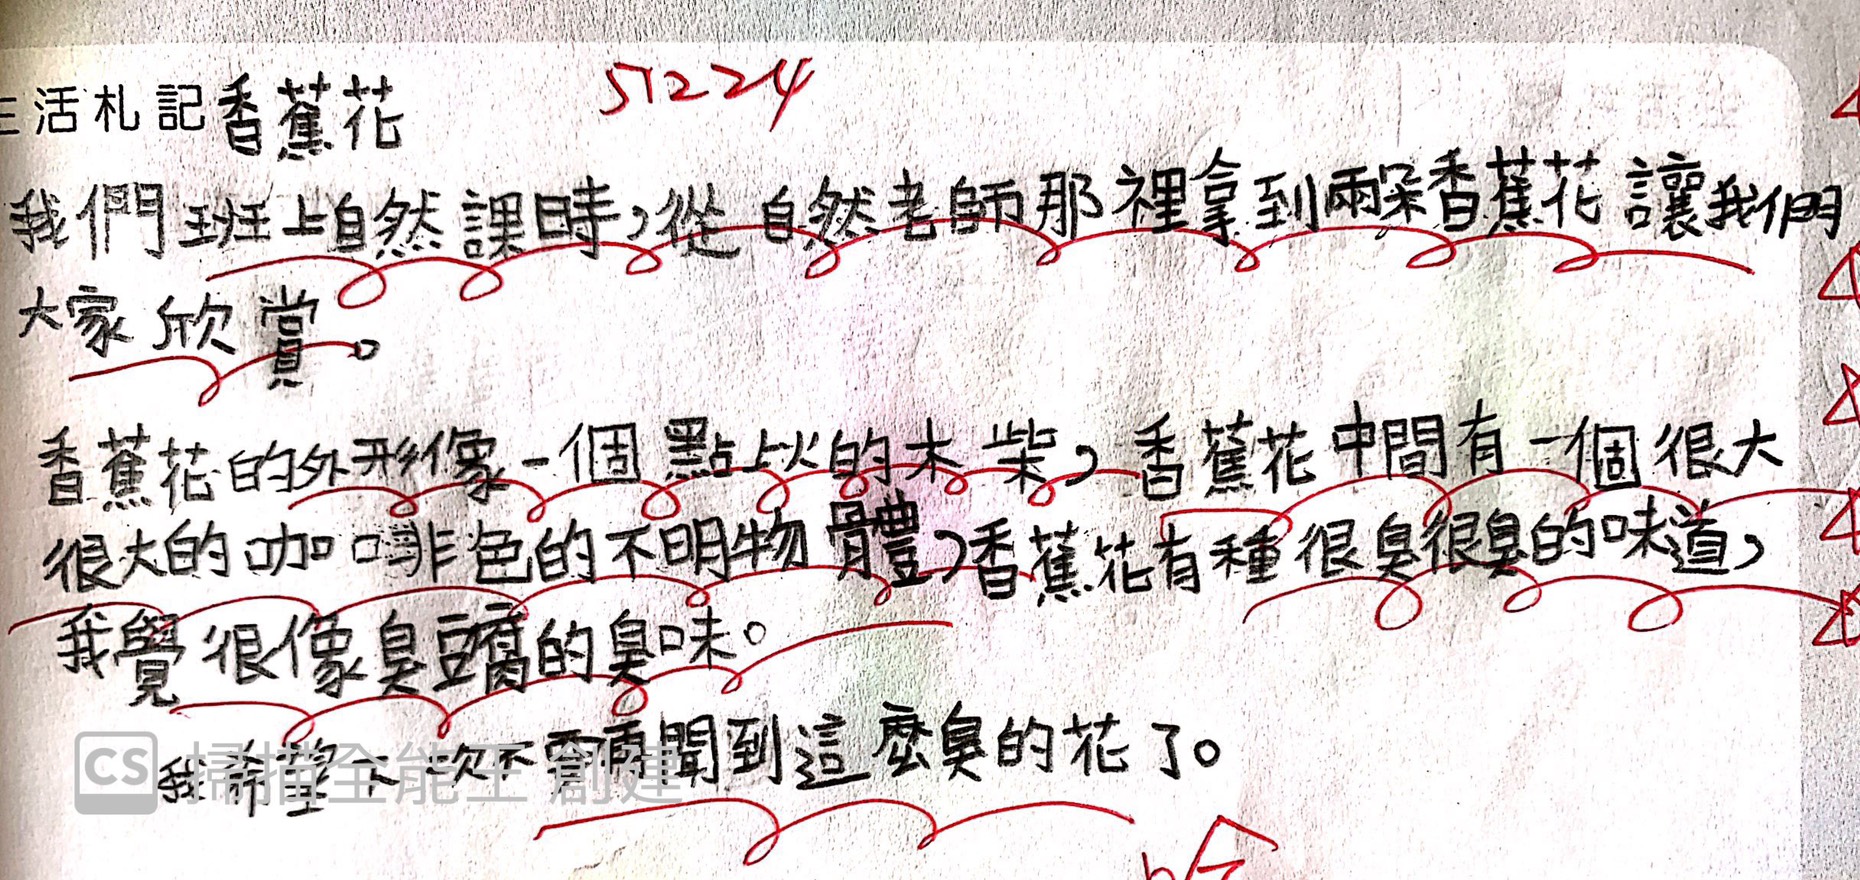 生活札記香蕉花
51224
我們班上自然課時，從自然老師那裡拿到兩朵香蕉花讓我們
大家欣賞。
香蕉花的外形像一個點上火的木柴，香蕉花中間有一個很大
很大的咖啡色的不明物體，香蕉花有種很臭很臭的味道，
我覺很像臭豆腐的臭味。
我希望下次不要再聞到這麼臭的花了。
CS 掃描全能王 創建